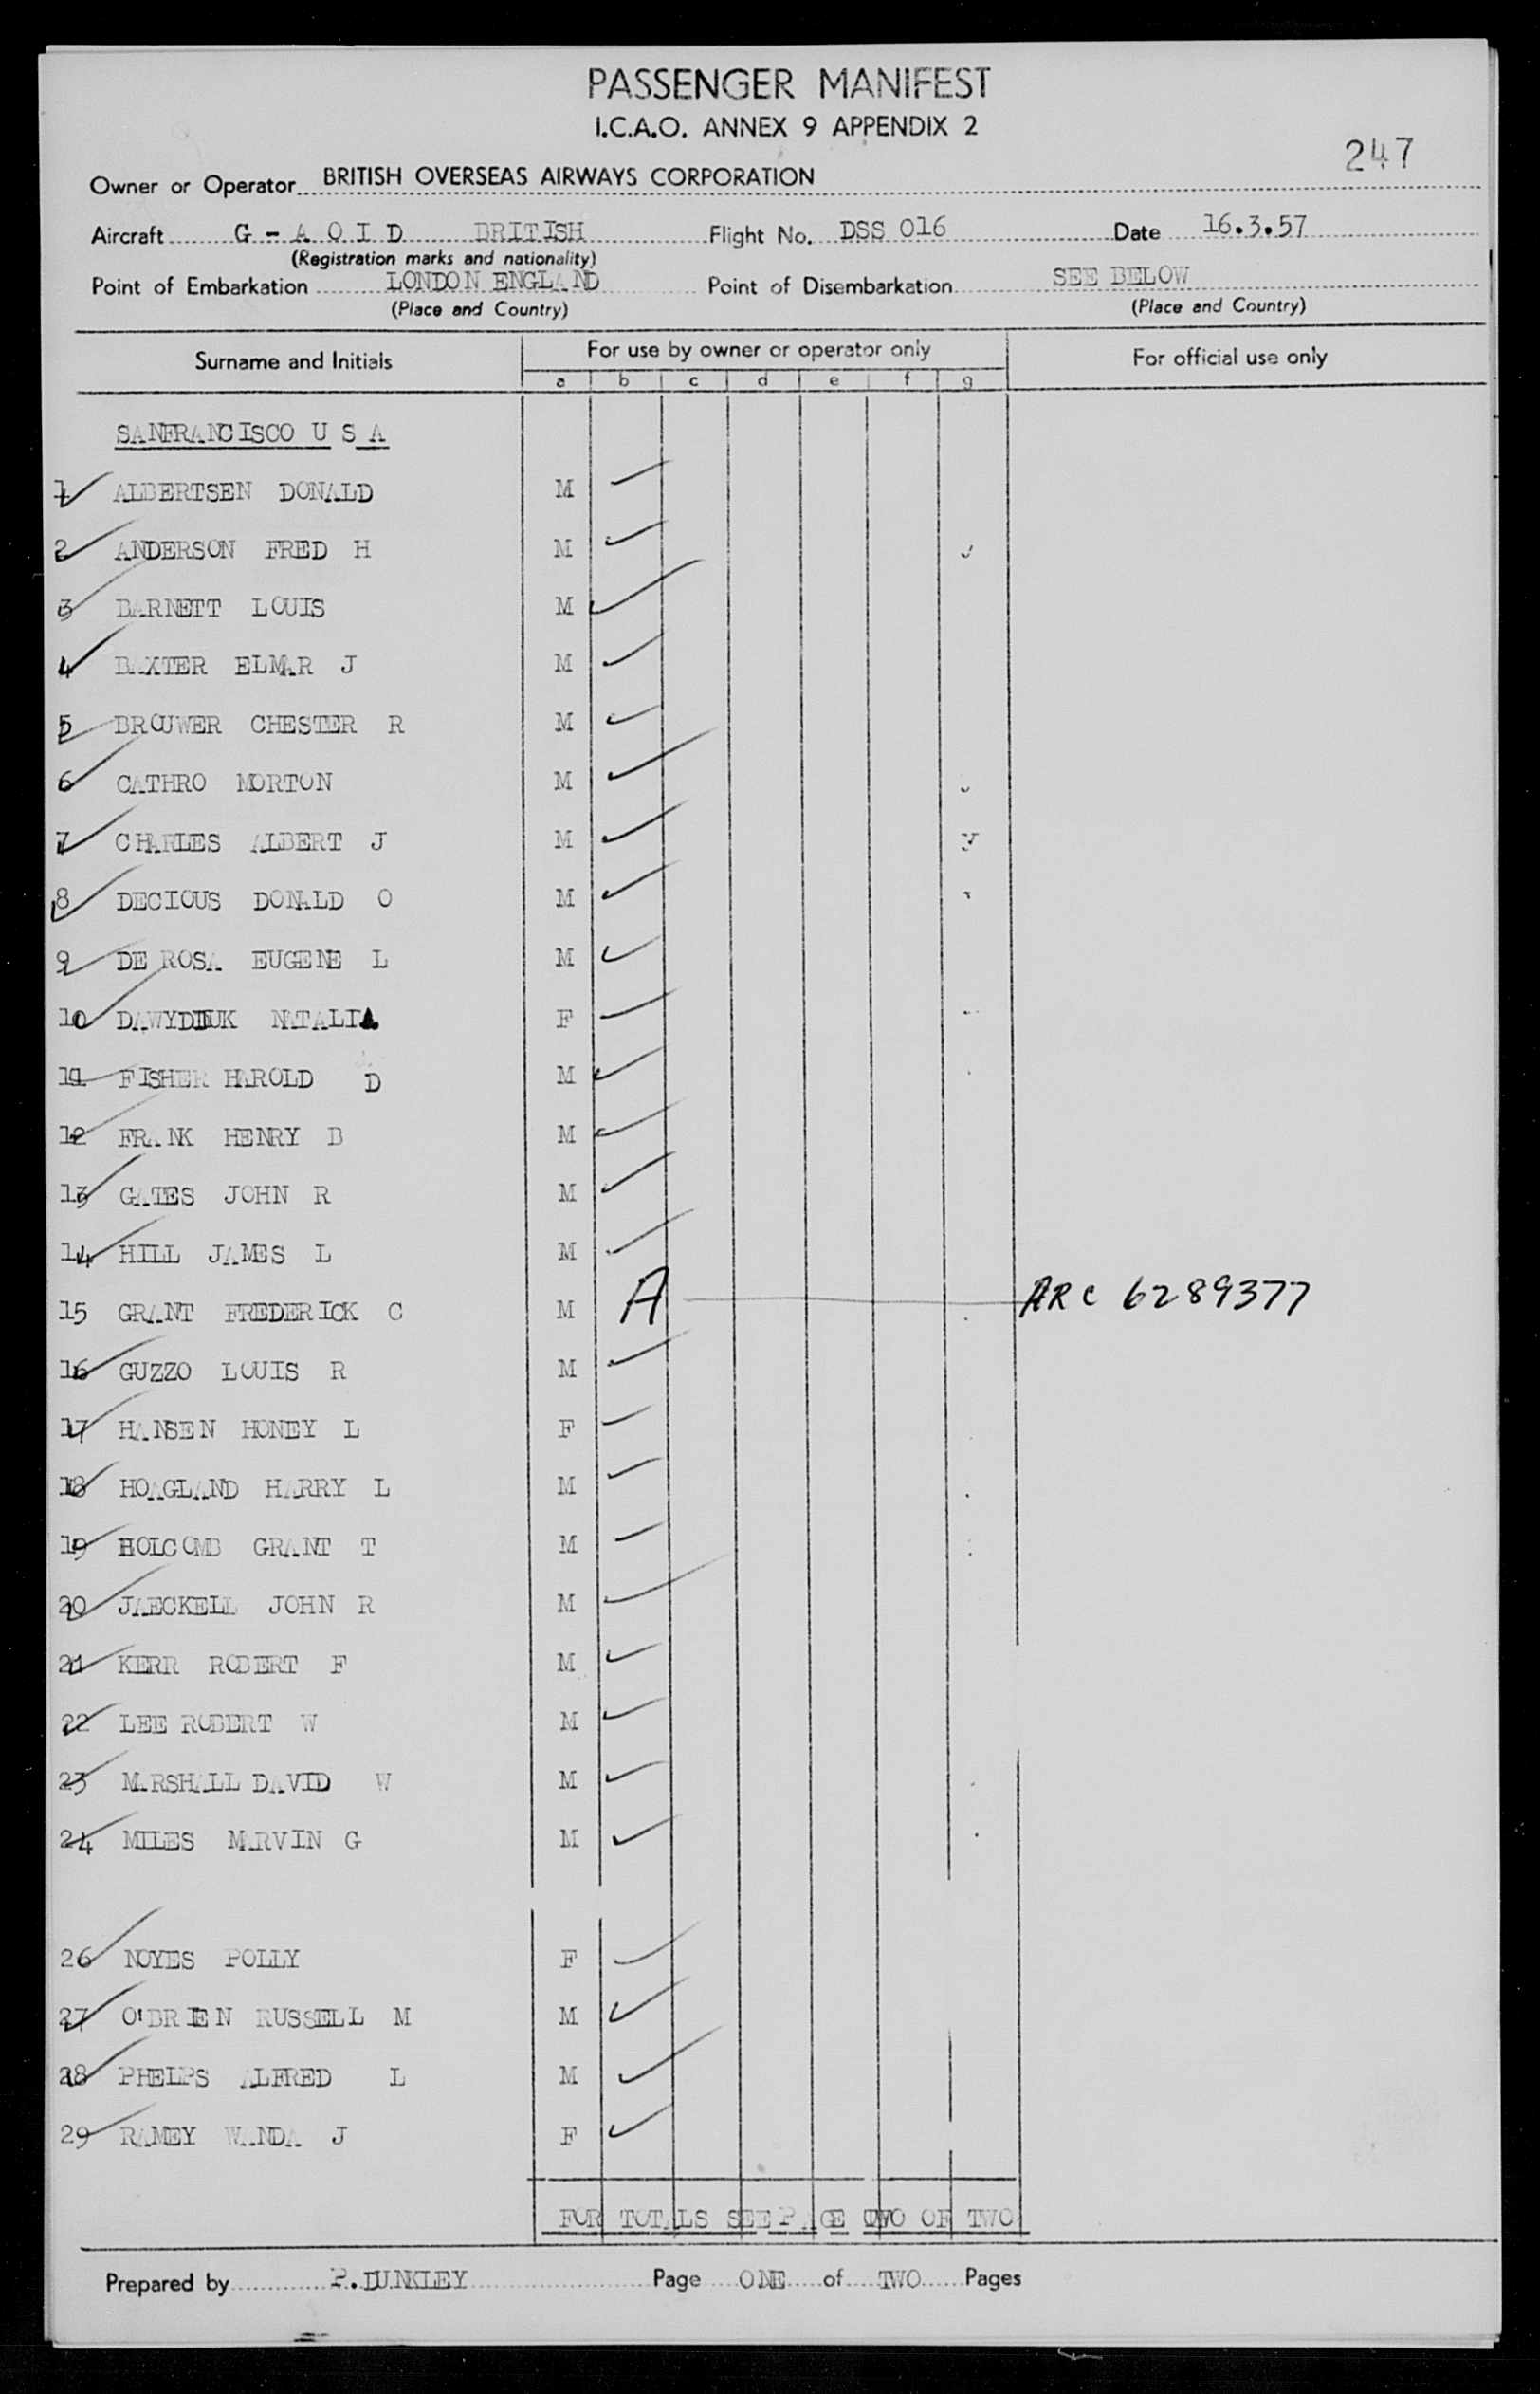 PASSENGER MANIFEST
I.C.A.O. ANNEX 9 APPENDIX 2
247
Owner or Operator BRITISH OVERSEAS AIRWAYS CORPORATION
Aircraft G - A O I D BRITISH Flight No. DSS 016 Date 16.3.57
(Registration marks and nationality)
Point of Embarkation LONDON ENGLAND Point of Disembarkation SEE BELOW
(Place and Country) (Place and Country)
Surname and Initials For use by owner or operator only For official use only
a b c d e f g
SANFRANCISCO U S A
1 ALBERTSEN DONALD M
2 ANDERSON FRED H M
3 BARNETT LOUIS M
4 BAXTER ELMAR J M
5 BROUWER CHESTER R M
6 CATHRO MORTON M
7 CHARLES ALBERT J M
8 DECIOUS DONALD O M
9 DE ROSA EUGENE L M
10 DAWYDIUK NATALIA F
11 FISHER HAROLD D M
12 FRANK HENRY B M
13 GATES JOHN R M
14 HILL JAMES L M
15 GRANT FREDERICK C M A ARC 6289377
16 GUZZO LOUIS R M
17 HANSEN HONEY L F
18 HOAGLAND HARRY L M
19 HOLCOMB GRANT T M
20 JAECKELL JOHN R M
21 KERR ROBERT F M
22 LEE ROBERT W M
23 MARSHALL DAVID W M
24 MILES MARVIN G M
26 NOYES POLLY F
27 O'BRIEN RUSSELL M M
28 PHELPS ALFRED L M
29 RAMEY WANDA J F
FOR TOTALS SEE PAGE TWO OF TWO
Prepared by P.DUNKLEY Page ONE of TWO Pages